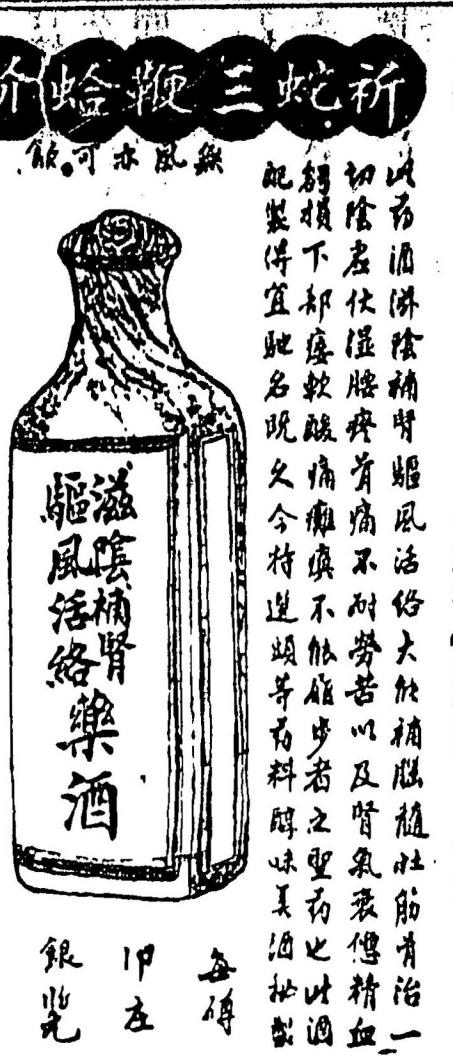 祈蛇三鞭蛤蚧
無風亦可飲
此药酒滋陰補腎驅風活络大能補腦髓壯筋骨治一
切陰虛伏湿腰疼骨痛不耐勞苦以及腎氣衰憊精血
虧損下部痿軟酸痛癱瘓不能踏步者之聖药也此酒
配裝得宜馳名既久今特選頭等药料醇味美酒秘製
滋陰補腎
驅風活絡
藥酒
每磚
卬庄
銀毫